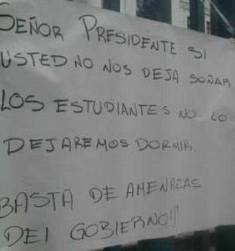 SEÑOR PRESIDENTE SI
USTED NO NOS DEJA SOÑAR
LOS ESTUDIANTES NO LO
DEJAREMOS DORMIR.
BASTA DE AMENAZAS
DEl GOBIERNO!!!